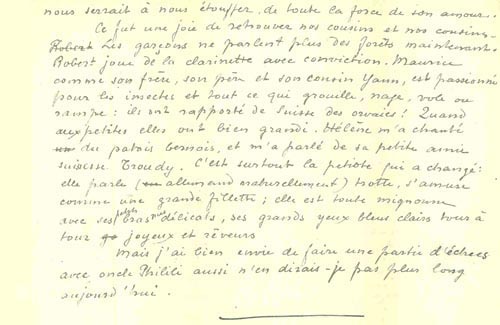 nous serrait à nous étouffer, de toute la force de son amour.
Ce fut une joie de retrouver nos cousins et nos cousines.
Robert Les garçons ne parlent plus des forêts maintenant.
Robert joue de la clarinette avec conviction. Maurice
comme son frère, son père et son cousin Yann, est passionné
pour les insectes et tout ce qui grouille, nage, vole ou
rampe : ils ont rapporté de Suisse des orvaies! Quand
aux petites elles ont bien grandi. Hélène m'a chanté
du patois bernois, et m'a parlé de sa petite amie
suissesse Troudy. C'est surtout la petiote qui a changé:
elle parle (allemand naturellement) trotte, s'amuse
comme une grande fillette; elle est toute mignonne
avec ses petits bras nus délicats, ses grands yeux bleus clairs tour à
tour joyeux et rêveurs
Mais j'ai bien envie de faire une partie d'échecs
avec oncle Philili aussi n'en dirais-je pas plus long
aujourd'hui.